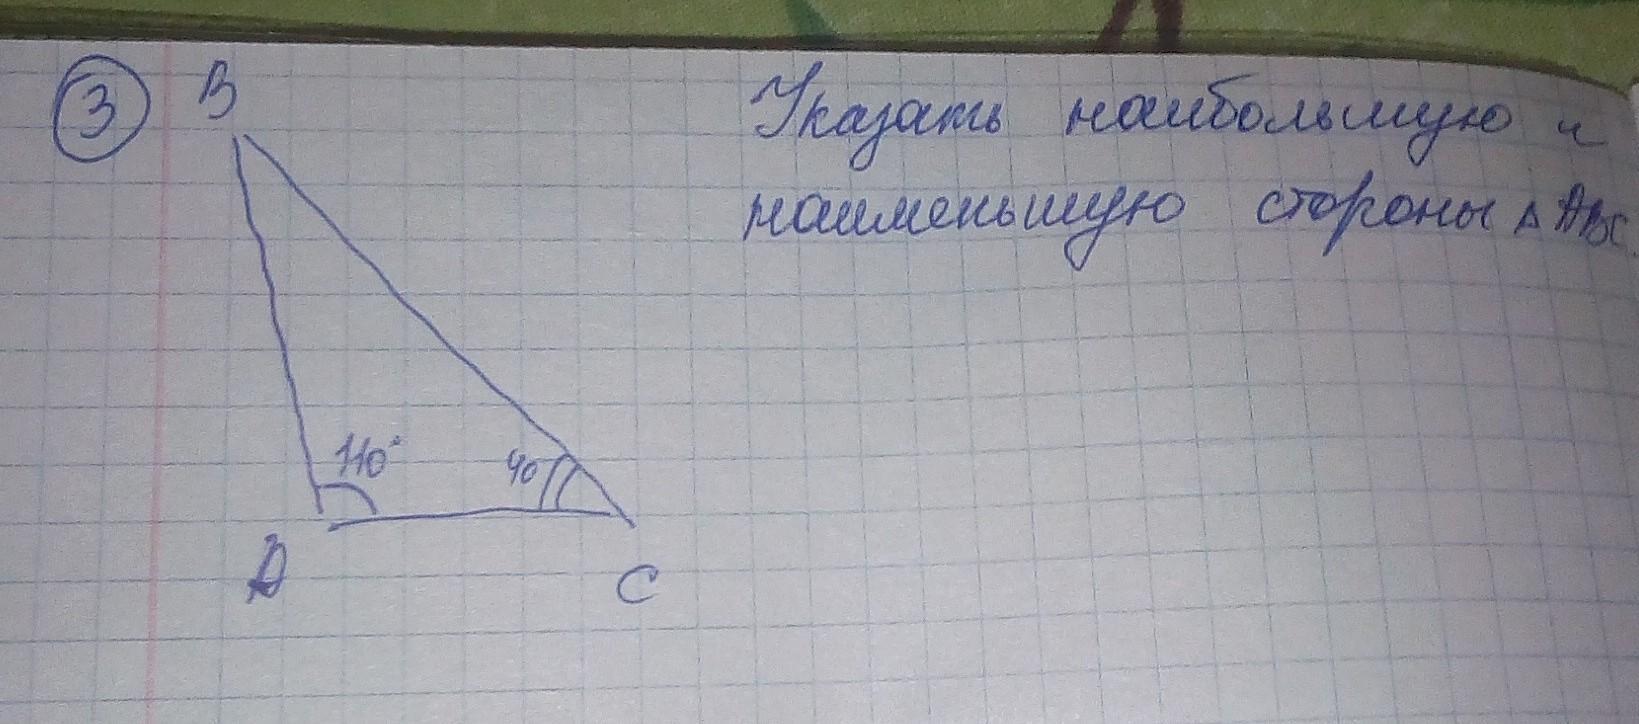 3 B Указать наибольшую и
наименьшую стороны △ ABC.
110°
40
C